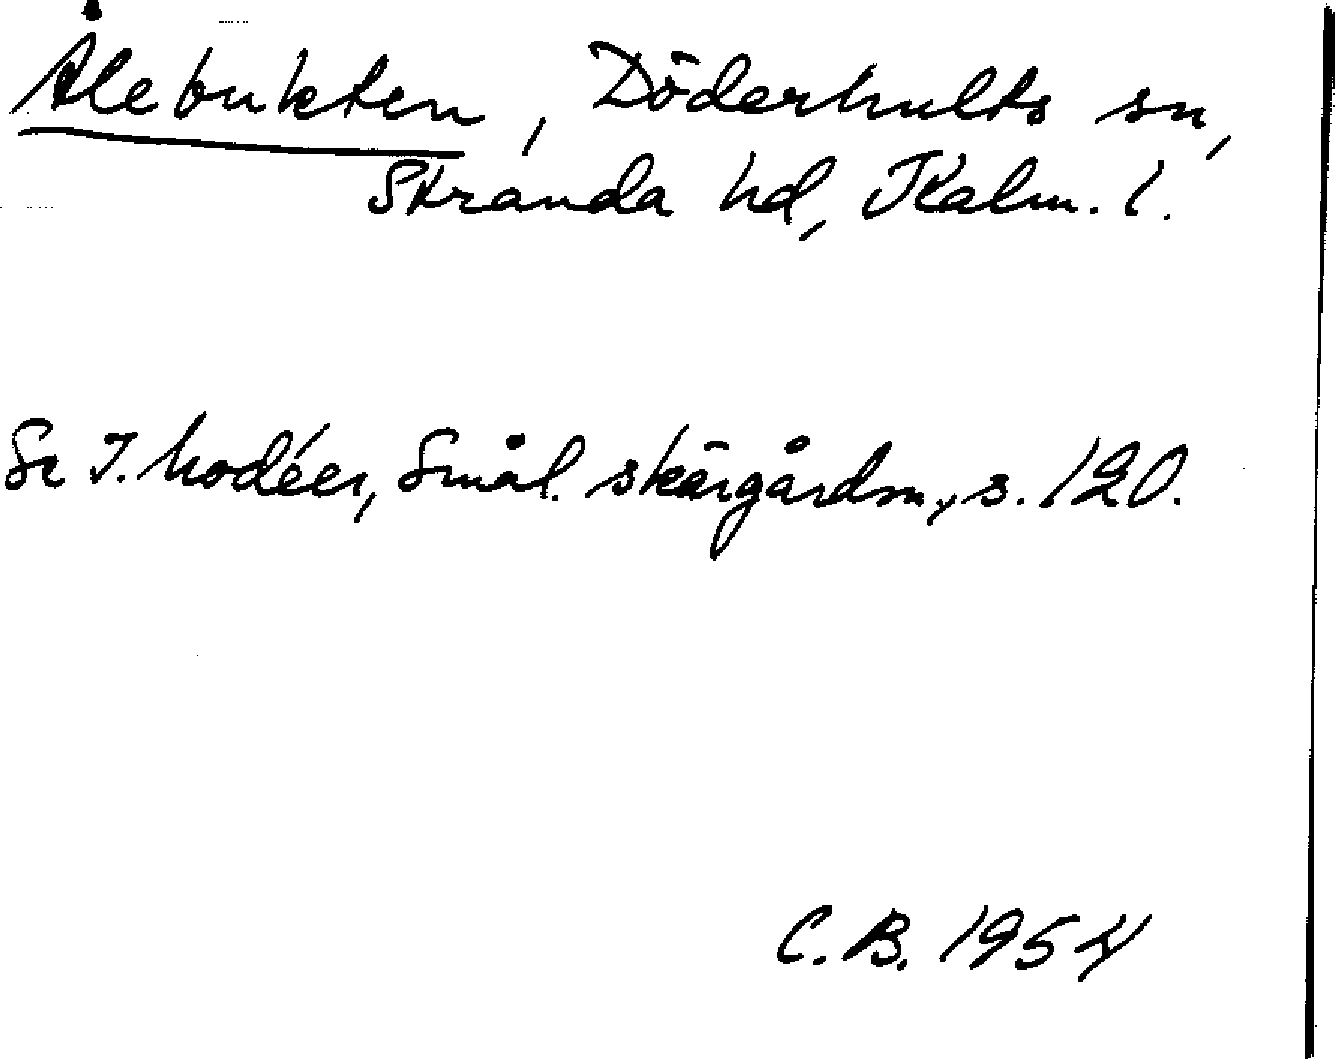 Ålebukten, Döderhults sn,
Stranda hd, Kalm. l.
Se I. Modéer, Smål. skärgårdsn., s. 120.
C. B. 1954